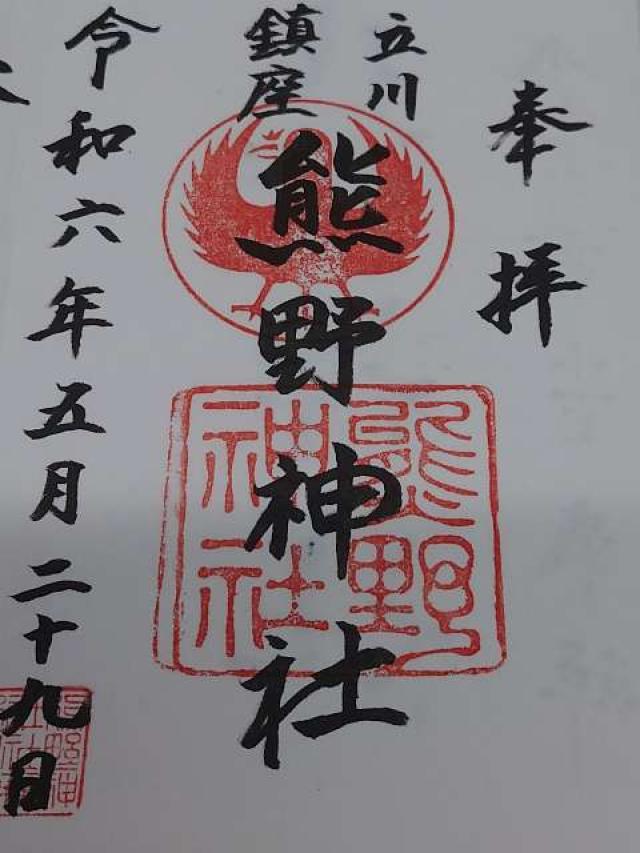 奉拝
立川
鎮座
熊野神社
熊野
神社
令和六年五月二十九日